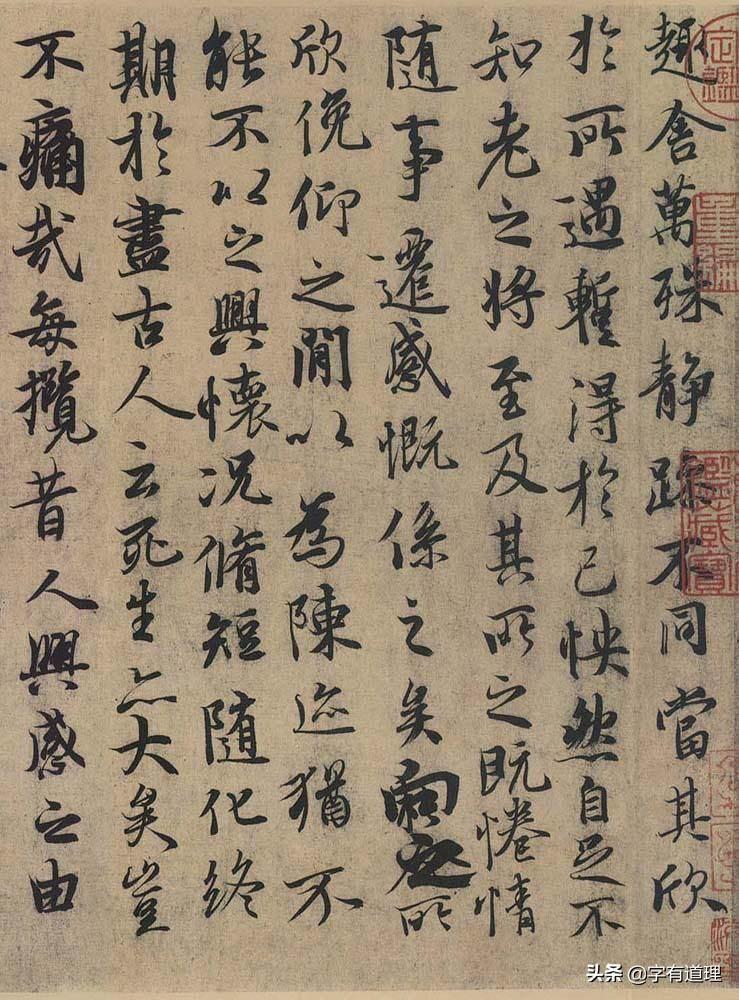 趣舍萬殊静躁不同當其欣
於所遇蹔得於己怏然自足不
知老之將至及其所之既惓情
随事遷感慨係之矣向之所
欣俛仰之閒以為陳迹猶不
能不以之興懷況脩短随化終
期於盡古人云死生亦大矣豈
不痛哉每攬昔人興感之由
头条 @字有道理